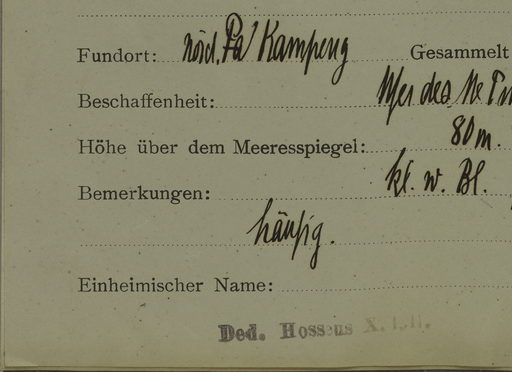 Fundort: nördl. Pa Kampeng Gesammelt
Beschaffenheit: Ufer des Me
Höhe über dem Meeresspiegel: 80 m.
Bemerkungen: kl. w. Bl.
häufig.
Einheimischer Name:
Ded. Hosseus X.